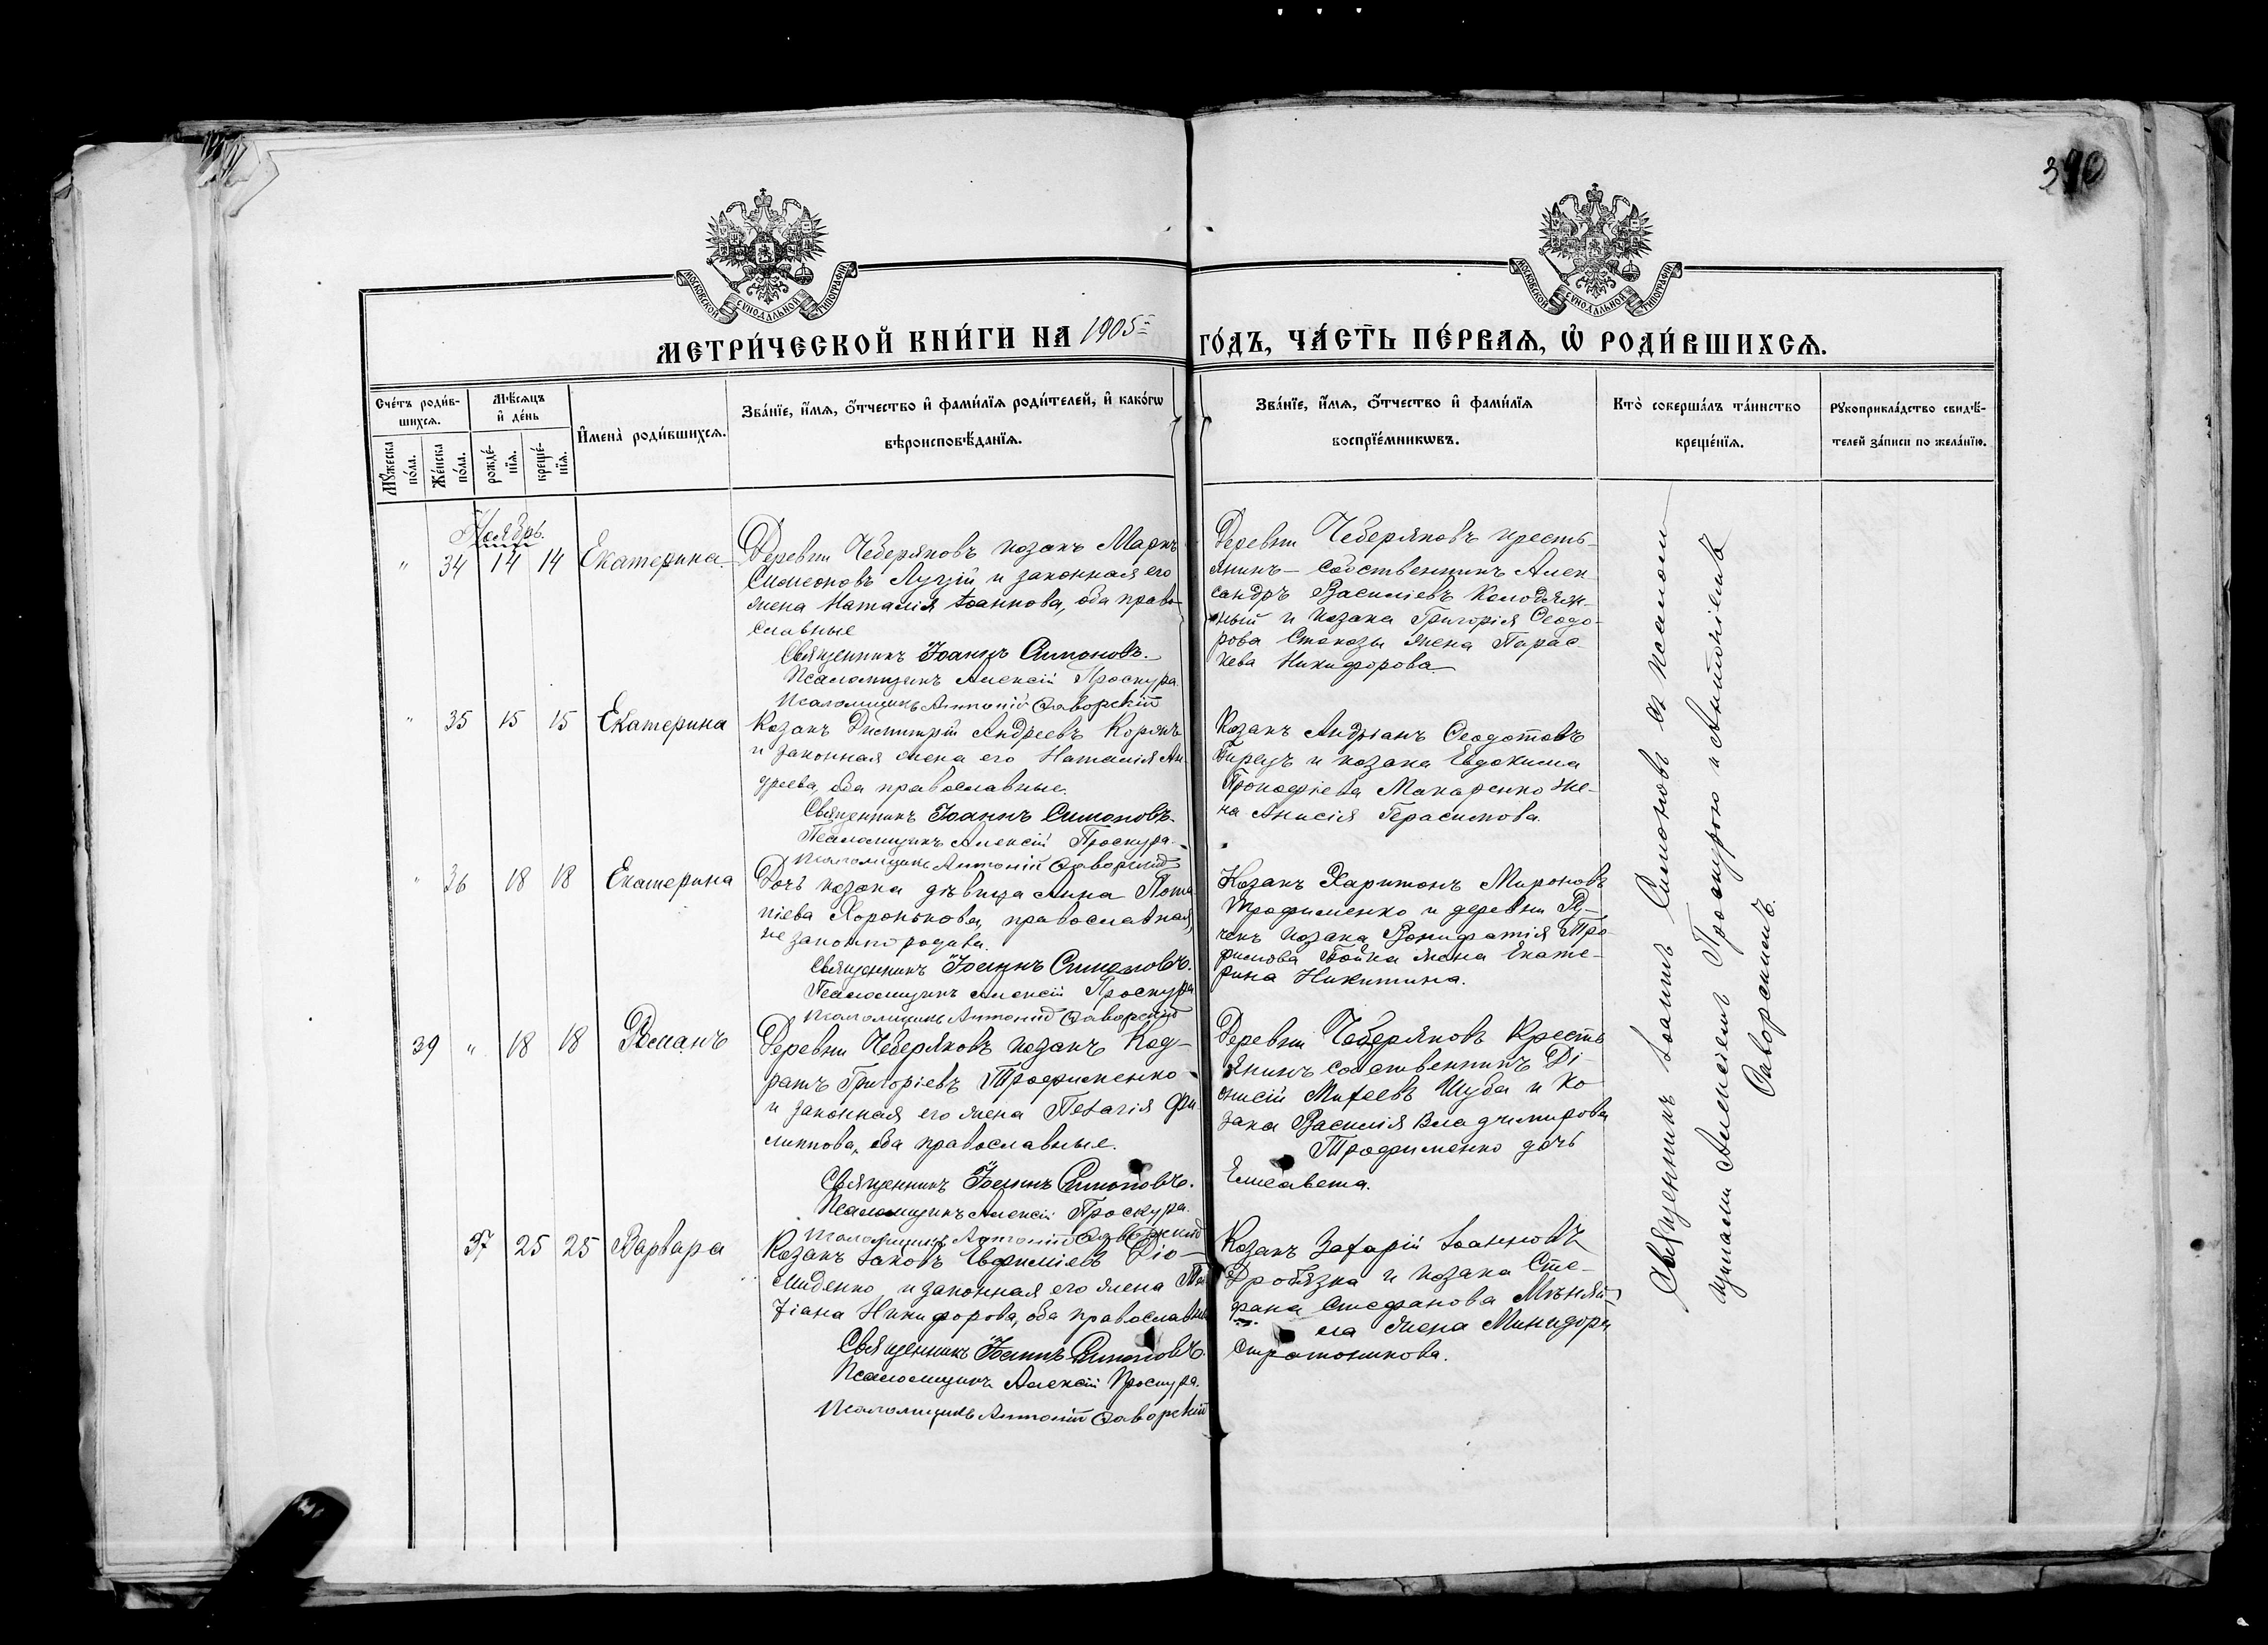 390
МОСКОВСКОЙ СѴНОДАЛЬНОЙ ТИПОГРАФІИ
МОСКОВСКОЙ СѴНОДАЛЬНОЙ ТИПОГРАФІИ
МЕТРИ́ЧЕСКОЙ КНИ́ГИ НА 1905 ГО́ДЪ, ЧА́СТЬ ПЕ́РВАѦ, Ѡ҆ РОДИ́ВШИХСѦ.
Сче́тъ роди́в-
шихсѧ.
Мꙋ́жеска
по́ла.
Же́нска
по́ла.
Мѣ́сѧцъ
и҆ де́нь
рожде́-
нїѧ.
креще́-
нїѧ.
И҆мена̀ роди́вшихсѧ.
Зва́нїе, и҆́мѧ, ѻ҆́тчество и҆ фами́лїѧ роди́телей, и҆ како́гѡ
вѣроисповѣ́данїѧ.
Зва́нїе, и҆́мѧ, ѻ҆́тчество и҆ фами́лїѧ
воспрїе́мникѡвъ.
Кто̀ соверша́лъ та́инство
креще́нїѧ.
Рꙋкоприкла́дство свидѣ́-
телей за́писи по жела́нїю.
Ноябрь.
" 34 14 14 Екатерина
Деревни Чеберяковъ козакъ Маркъ
Симеоновъ Луцій и законная его
жена Наталія Іоаннова, оба право-
славные
Священникъ Іоаннъ Симоновъ.
Псаломщикъ Алексій Проскура.
Псаломщикъ Антоній Яворскій
Деревни Чеберяковъ кресть-
янинъ-собственникъ Алек
сандръ Василіевъ Колодяж-
ный и козака Григорія Ѳеодо-
рова Стокозы жена Парас-
кева Никифорова
" 35 15 15 Екатерина
Козакъ Димитрій Андреевъ Корякъ
и законная жена его Наталія Ан
дреева, оба православные.
Священникъ Іоаннъ Симоновъ.
Псаломщикъ Алексій Проскура.
Псаломщикъ Антоній Яворскій
Козакъ Андріанъ Ѳеодотовъ
и козака Евдокима
Прокофіева Макаренко же-
на Анисія Герасимова.
" 36 18 18 Екатерина
Дочь козака дѣвица Анна Пота
піева Хоронькова, православная,
незаконно родива.
Священникъ Іоаннъ Симоновъ.
Псаломщикъ Алексій Проскура
Псаломщикъ Антоній Яворскій
Козакъ Харитонъ Мироновъ
Трофименко и деревни Ру-
чекъ козака Вонифатія Тро
фимова Бойка жена Екате-
рина Никитина.
39 " 18 18 Романъ
Деревни Чеберяковъ козакъ Код-
ратъ Григоріевъ Трофименко
и законная его жена Пелагія Фи
липпова, оба православные.
Священникъ Іоаннъ Симоновъ.
Псаломщикъ Алексій Проскура.
Псаломщикъ Антоній Яворскій
Деревни Чеберяковъ кресть
янинъ собственникъ Ді
онисій Матѳеевъ Шуба и ко
зака Василія Владимирова
Трофименко дочь
Елисавета.
37 25 25 Варвара
Козакъ Іаковъ Евфиміевъ Діо-
миденко и законная его жена Та
тіана Никифорова, оба православны
Священникъ Іоаннъ Симоновъ.
Псаломщикъ Алексій Проскура.
Псаломщикъ Антоній Яворскій
Козакъ Захарій Іоанновъ
Дробязка и козака Сте-
фана Стефанова
жена Минидора
Стратоникова.
Священникъ Іоаннъ Симоновъ съ псалом
щиками Алексіемъ Проскурою и Антоніемъ
Яворскимъ.